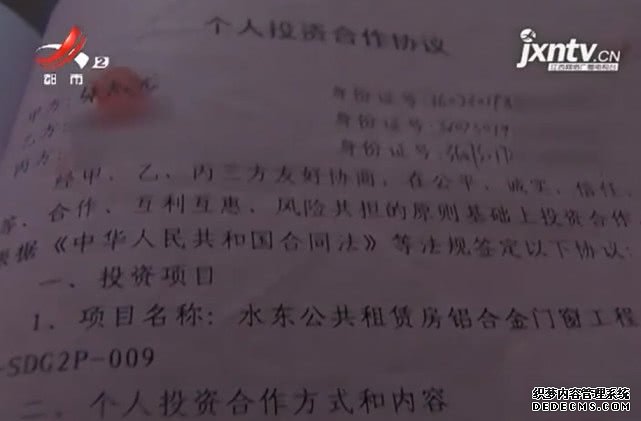 个人投资合作协议
jxntv.CN
江西网络广播电视台
都市2
甲方:
身份证号:
乙方:
身份证号:
丙方:
身份证号:
经甲、乙、丙三方友好协商,在公平、诚实、信任、
等、合作、互利互惠、风险共担的原则基础上投资合作
根据《中华人民共和国合同法》等法规签定以下协议:
一、投资项目
1、项目名称:水东公共租赁房铝合金门窗工程
-SDG2P-009
二、个人投资合作方式和内容
织梦内容管理系统
DEDECMS.COM